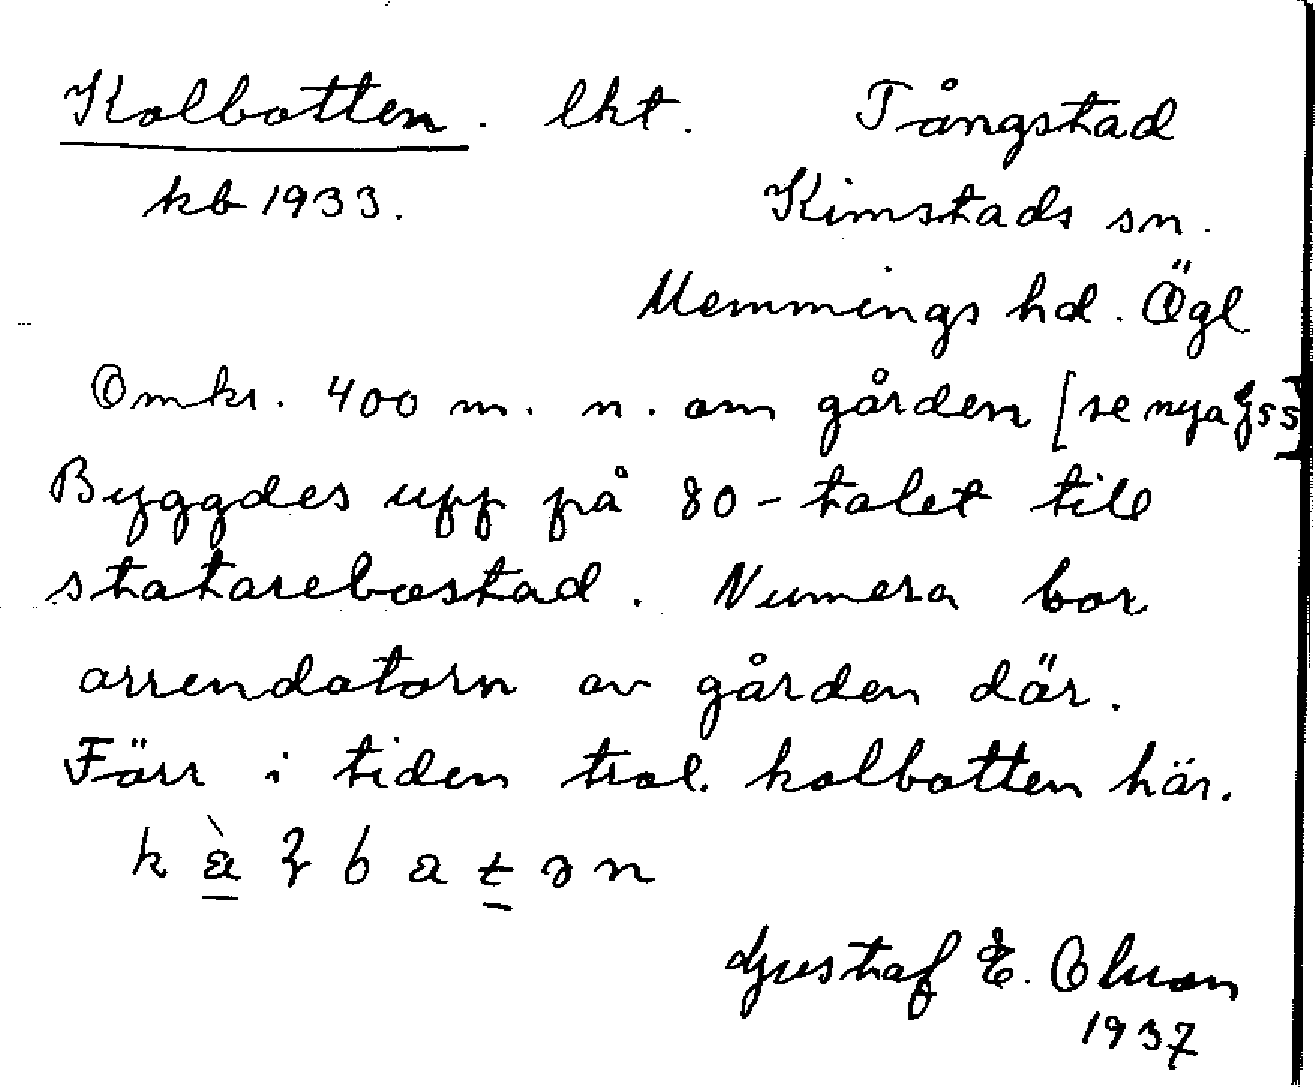 Kolbotten. lht. Tångstad
kb 1933. Kimstads sn.
Memmings hd. Ögl
Omkr. 400 m. n. om gården [se nya
Byggdes upp på 80-talet till
statarebostad. Numera bor
arrendatorn av gården där.
Förr i tiden trol. kolbotten här.
Gustaf E.
1937